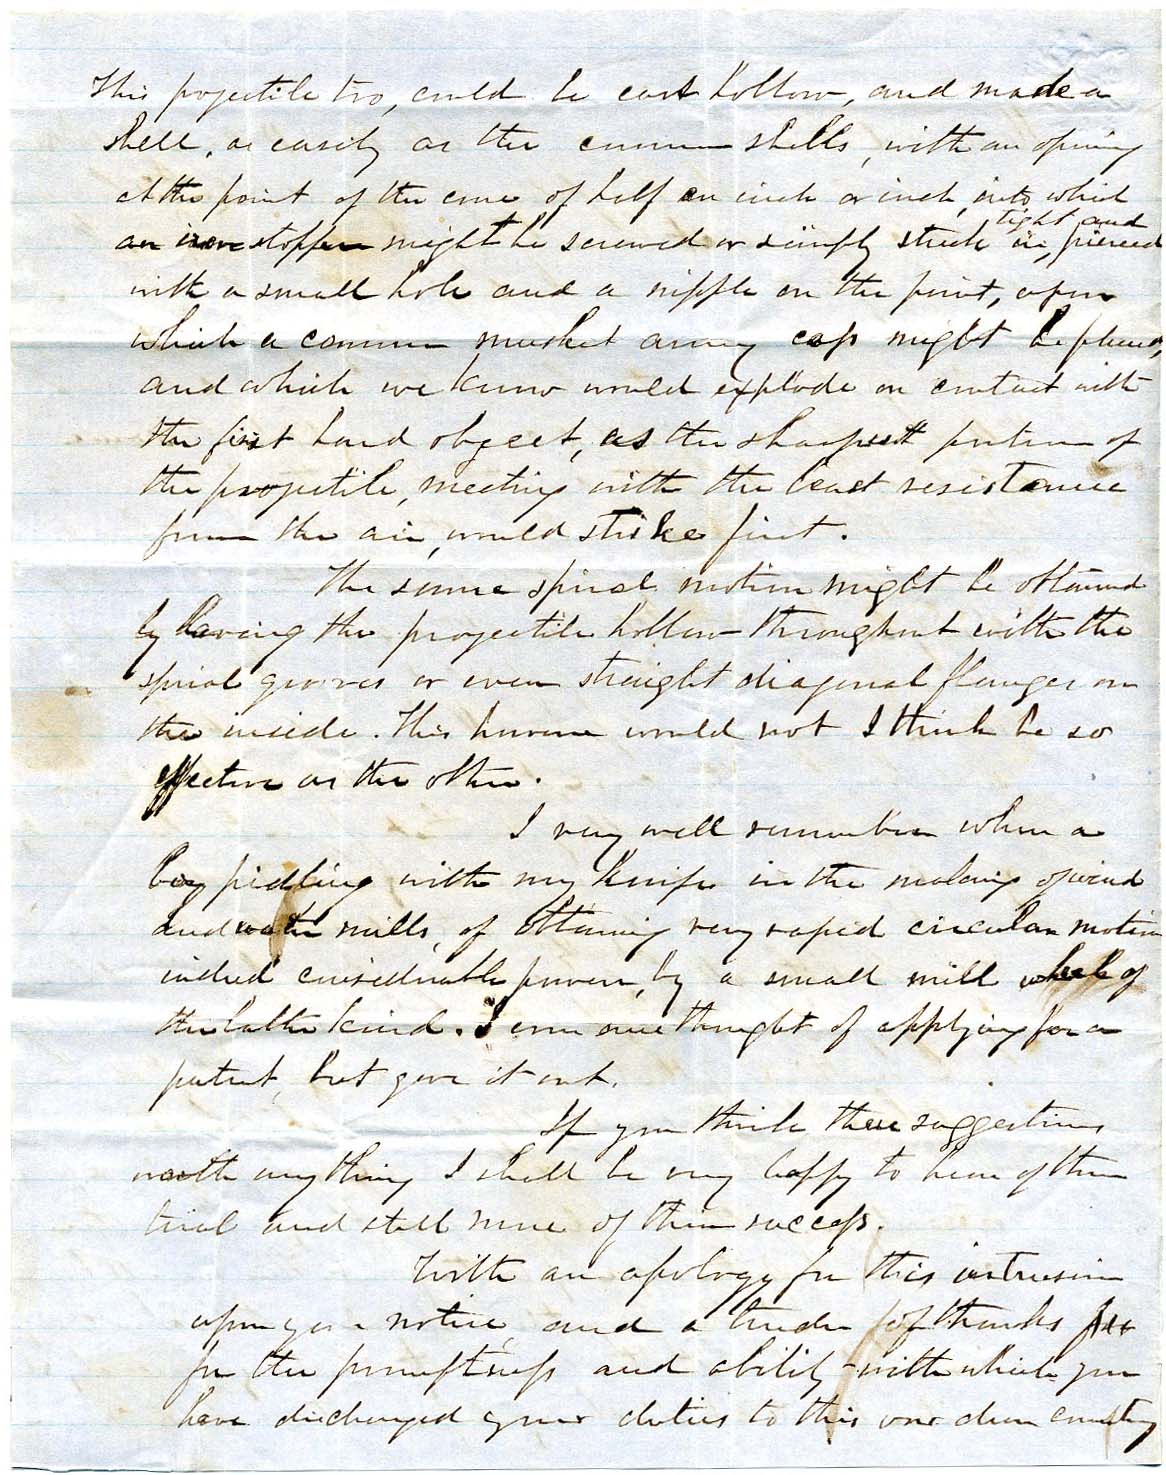 This projectile too, could be cast hollow, and made a
shell, as easily as the common shells, with an opening
at the point of the cone of half an inch or inch, into which
an iron stopper might be screwed or simply stuck in, tight and pierced
with a small hole and a nipple on the point, upon
which a common musket army cap might be placed,
and which we know would explode on contact with
the first hard object, as the sharpest portion of
the projectile, meeting with the least resistance
from the air, would strike first.
The same spiral motion might be obtained
by having the projectile hollow throughout with the
spiral grooves or even straight diagonal flanges on
the inside. This however would not I think be so
effective as the other.
I very well remember when a
boy pidling with my knife in the making of wind
and water mills, of obtaining very rapid circular motion
indeed considerable power, by a small mill wheel of
the latter kind. I even once thought of applying for a
patent, but gave it out.
If you think these suggestions
worth anything I shall be very happy to hear of their
trial and still more of their success.
With an apology for this intrusion
upon your notice, and a tender of thanks
for the promptness and ability with which you
have discharged your duties to this our dear country